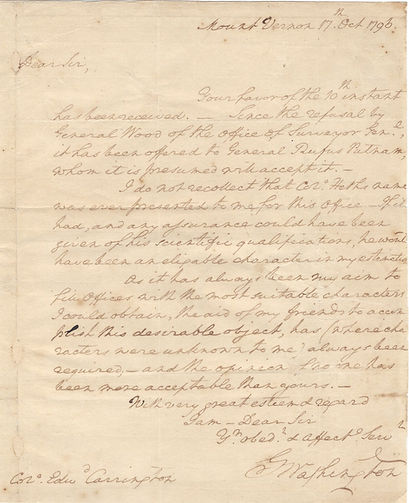 Mount Vernon 17th Oct 1796.
Dear Sir,
Your favor of the 10th instant
has been received. — Since the refusal by
General Wood of the Office of Surveyor Genl,
it has been offered to General Rufus Putnam,
whom it is presumed will accept it. —
I do not recollect that Colo. Heths name
was ever presented to me for this Office — If it
had, and any assurance could have been
given of his scientific qualifications, he would
have been an eligable character in my estimation
As it has always been my aim to
fill Offices with the most suitable characters
I could obtain, the aid of my friends to accom
plish this desirable object, has (where cha
racters were unknown to me) always been
required, — and the opinion of no one has
been more acceptable than yours. —
With very great esteem & regard
I am — Dear Sir
Yr obedt & Affecte Servt
G Washington
Colo. Edwd Carrington